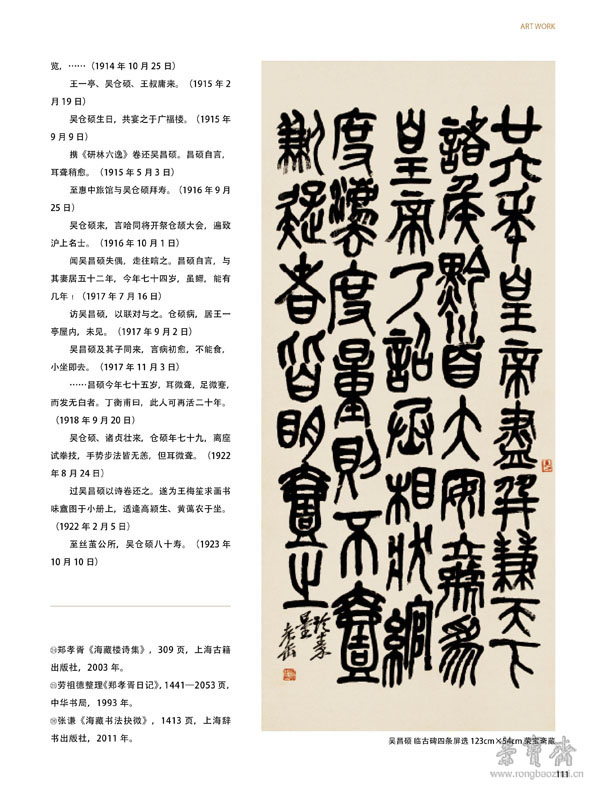 ART WORK
览，……（1914 年 10 月 25 日）
王一亭、吴仓硕、王叔庸来。（1915 年 2
月 19 日）
吴仓硕生日，共宴之于广福楼。（1915 年
9 月 9 日）
携《研林六逸》卷还吴昌硕。昌硕自言，
耳聋稍愈。（1915 年 5 月 3 日）
至惠中旅馆与吴仓硕拜寿。（1916 年 9 月
25 日）
吴仓硕来，言哈同将开祭仓颉大会，遍致
沪上名士。（1916 年 10 月 1 日）
闻吴昌硕失偶，走往唁之。昌硕自言，与
其妻居五十二年，今年七十四岁，虽鳏，能有
几年！（1917 年 7 月 16 日）
访吴昌硕，以联对与之。仓硕病，居王一
亭屋内，未见。（1917 年 9 月 2 日）
吴昌硕及其子同来，言病初愈，不能食，
小坐即去。（1917 年 11 月 3 日）
……昌硕今年七十五岁，耳微聋，足微蹇，
而发无白者。丁衡甫曰，此人可再活二十年。
（1918 年 9 月 20 日）
吴仓硕、诸贞壮来，仓硕年七十九，离座
试拳技，手势步法皆无恙，但耳微聋。（1922
年 8 月 24 日）
过吴昌硕以诗卷还之。遂为王梅笙求画书
味盦图于小册上，适逢高颖生、黄蔼农于坐。
（1922 年 2 月 5 日）
至丝茧公所，吴仓硕八十寿。（1923 年
10 月 10 日）
郑孝胥《海藏楼诗集》，309 页，上海古籍
出版社，2003 年。
劳祖德整理《郑孝胥日记》，1441—2053 页，
中华书局，1993 年。
张谦《海藏书法抉微》，1413 页，上海辞
书出版社，2011 年。
廿六年皇帝盡并兼天下
諸侯黔首大安立號為
皇帝乃詔丞相狀綰
度灋度量則不壹
歉疑者皆明壹之
臨秦
量
老缶
吴昌硕 临古碑四条屏选 123cm×54cm 荣宝斋藏
榮寶齋
111